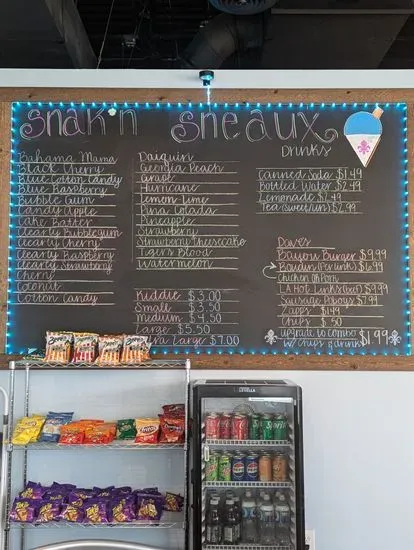 Snak'n Sneaux
Bahama Mama
Black Cherry
Blue Cotton Candy
Blue Raspberry
Bubble Gum
Candy Apple
Cake Batter
Clearly Bubblegum
Clearly Cherry
Clearly Raspberry
Clearly Strawberry
Cherry
Coconut
Cotton Candy
Daiquiri
Georgia Peach
Grape
Hurricane
Lemon Lime
Pina Colada
Pineapple
Strawberry
Strawberry Cheesecake
Tigers Blood
Watermelon
Kiddie $3.00
Small $3.50
Medium $4.50
Large $5.50
Extra Large $7.00
Drinks
Canned Soda $1.49
Bottled Water $2.49
Lemonade $2.49
Tea (sweet/un) $2.99
Daves
Bayou Burger $9.99
Boudin (Per Link) $6.99
Chicken OR Pork
LA Hot Links (beef) $9.99
Sausage Poboys $7.99
Zapps $1.49
Chips $.50
Upgrade to combo $1.99
w/ chips & drink